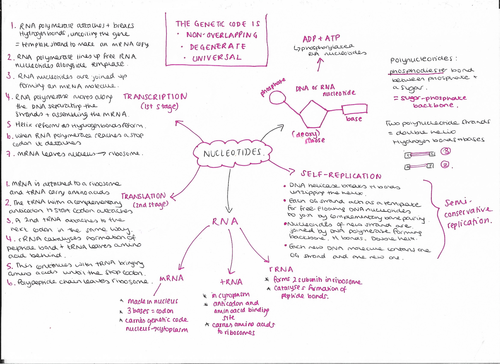 1. RNA polymerase attaches + breaks
Hydrogen bonds, uncoiling the gene
= template strand to make an mRNA copy
2. RNA polymerase lines up free RNA
nucleotides alongside template.
3. RNA nucleotides are joined up
forming an mRNA molecule.
4. RNA polymerase moves along
the DNA separating the
strands + assembling the mRNA.
5. Helix reforms as hydrogen bonds form.
6. When RNA polymerase reaches a stop
codon it detaches
7. mRNA leaves nucleus → ribosome.
TRANSCRIPTION
(1st stage)
THE GENETIC CODE IS
• NON-OVERLAPPING
• DEGENERATE
• UNIVERSAL
ADP + ATP
↳ phosphorylated
RNA nucleotides
phosphate
DNA or RNA
nucleotide
base
(deoxy)
ribose
Polynucleotides:
phosphodiester bond
between phosphate +
a sugar.
= sugar-phosphate
backbone.
Two polynucleotide strands
= double helix
Hydrogen bonds = bases
NUCLEOTIDES
1. mRNA is attached to a ribosome
and tRNA carry amino acids
2. The tRNA with a complementary
anticodon to start codon attaches
3. A 2nd tRNA attaches to the
next codon in the same way.
4. rRNA catalyses formation of
peptide bond + tRNA leaves amino acid
behind.
5. This continues with tRNA bringing
amino acids until the stop codon.
6. Polypeptide chain leaves ribosome.
TRANSLATION
(2nd stage)
SELF-REPLICATION
• DNA helicase breaks H bonds
unzipping the helix
• Each old strand acts as a template
for free floating DNA nucleotides
to join by complementary base pairing
• Nucleotides of new strand are
joined by DNA polymerase forming
backbone, H bonds, double helix.
• Each new DNA molecule contains one
old strand and one new one.
Semi-
conservative
replication.
RNA
mRNA
* made in nucleus
* 3 bases = codon
* carries genetic code
nucleus → cytoplasm
tRNA
* in cytoplasm
* anticodon and
amino acid binding
site
* carries amino acids
to ribosomes
rRNA
* forms 2 subunits in ribosome
* catalyse formation of
peptide bonds.